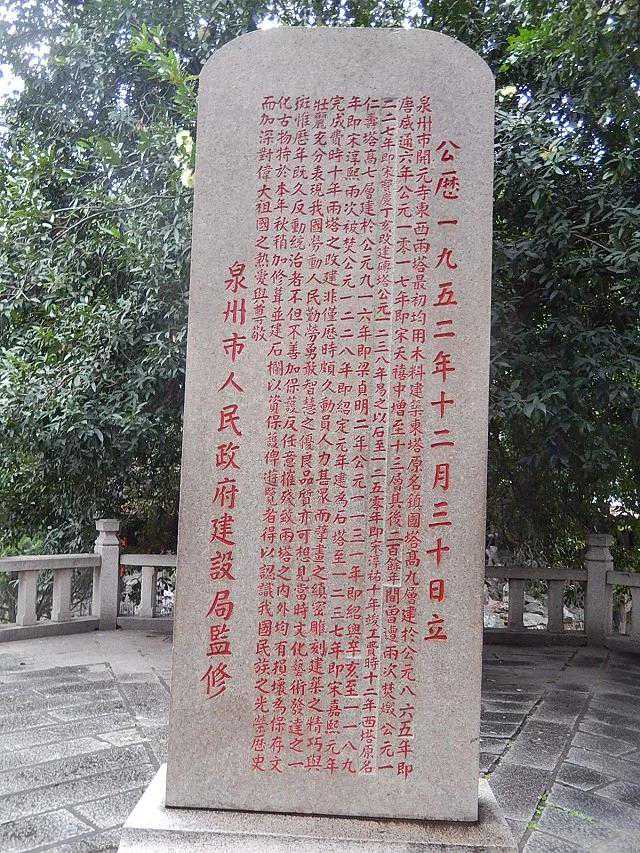 公歷一九五二年十二月三十日立
泉州市開元寺東西兩塔最初均用木料建築東塔原名鎮國塔高九層建於公元八六五年即
唐咸通六年公元一零一七年即宋天禧中增至十三層其後二百餘年間曾遭兩次焚燬公元一
二二七年即宋寶慶丁亥改建磚塔公元一二三八年易之以石至一二五零年即宋淳祐十年竣工費時十二年西塔原名
仁壽塔高七層建於公元九一六年即梁貞明二年公元一一三一年即紹興辛亥至一一八九
年即宋淳熙兩次被焚公元一二二八年即紹定元年建為石塔至一二三七年即宋嘉熙元年
完成費時十年兩塔之改建非僅歷時頗久動員人力甚眾而擘畫之縝密雕刻建築之精巧與
壯麗充分表現我國勞動人民勤勞勇敢智慧之優良品質亦可想見當時文化藝術發達之一
斑惟歷年既久反動統治者不但不善加保護反任意摧殘致兩塔之內外均有損壞為保存文
化古物特於本年秋稍加修葺並建石欄以資保護俾遊覽者得以認識我國民族之光榮歷史
而加深對偉大祖國之熱愛與尊敬
泉州市人民政府建設局監修